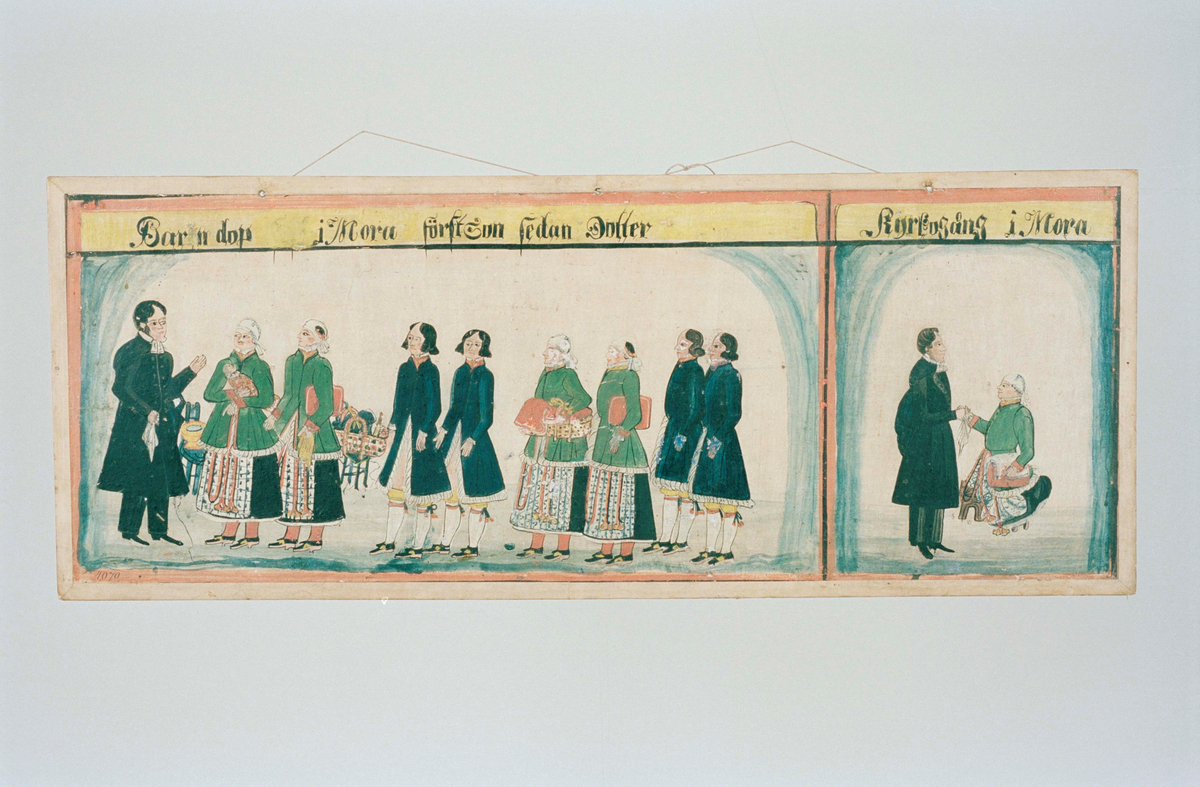 Barn dop i Mora först Son sedan Dotter
Kyrkogång i Mora
1070